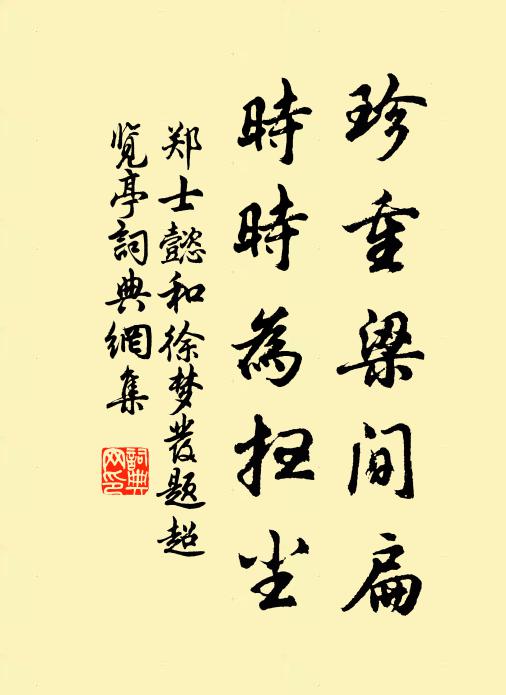 珍重梁间扁
時時為扫尘
郑士懿和徐梦发题超
览亭詞典網集
詞典网印